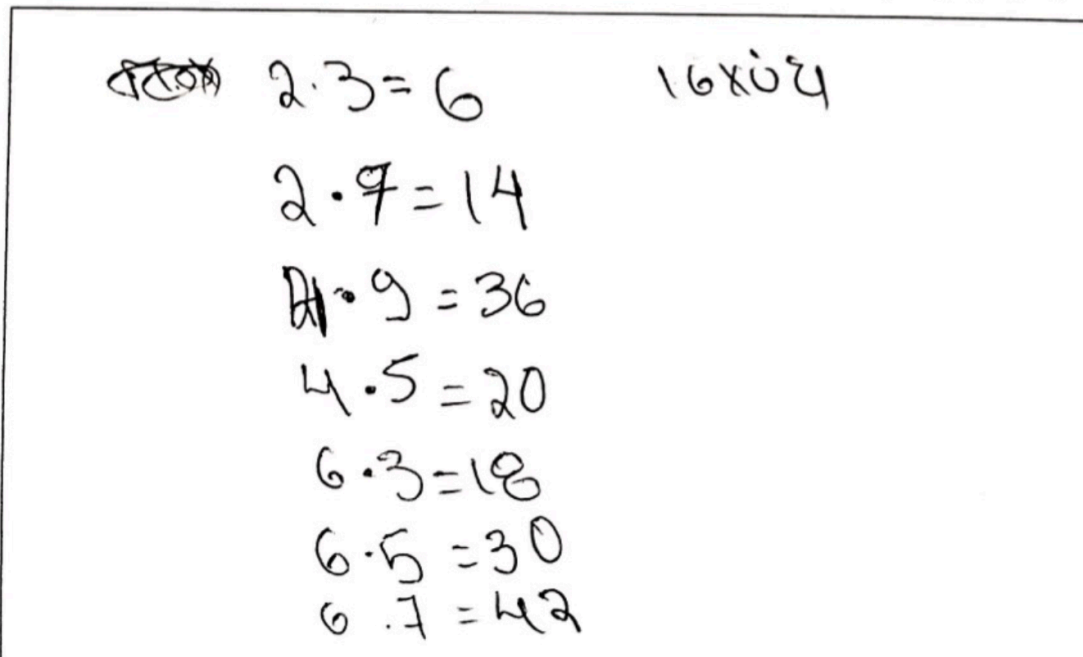 2.3=6
2.7=14
4.9=36
4.5=20
6.3=18
6.5=30
6.7=42